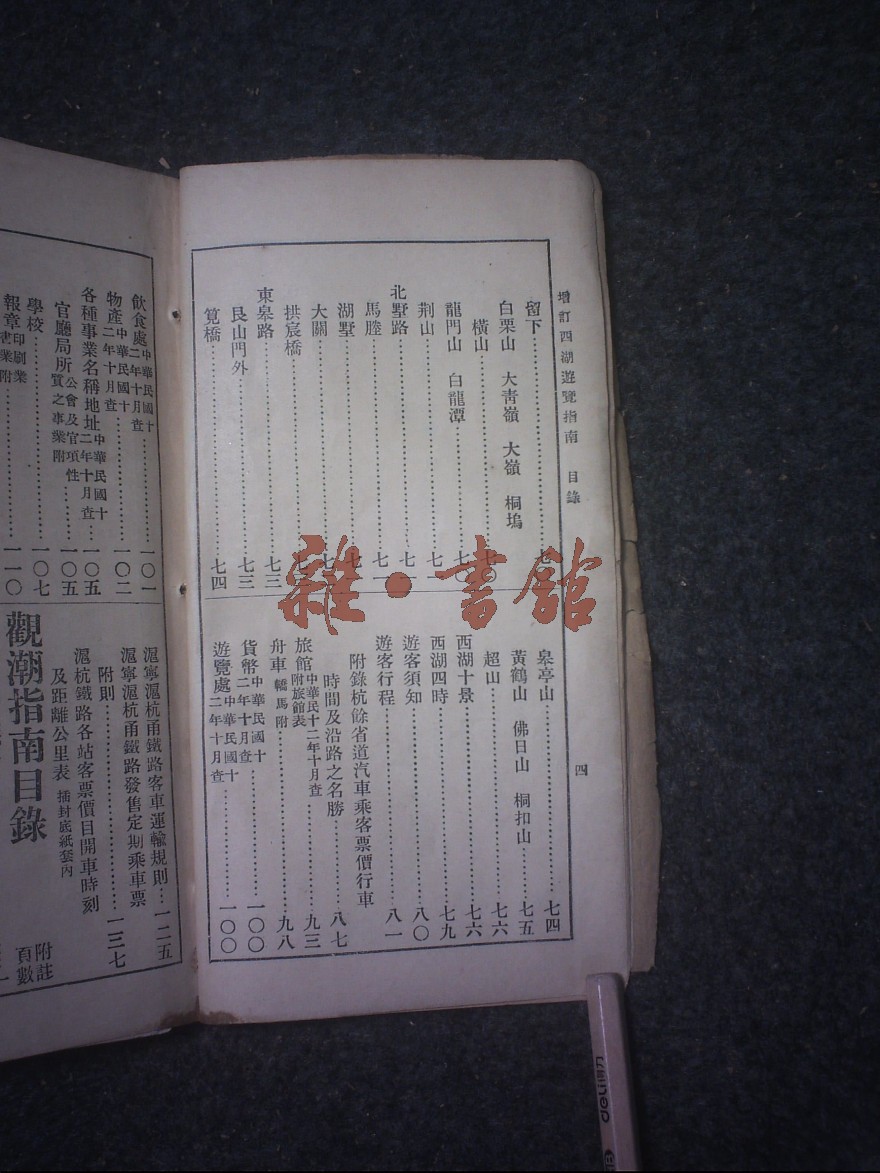 增訂西湖遊覽指南 目錄
四
留下
白栗山 大青嶺 大嶺 桐塢
橫山
龍門山 白龍潭
荆山
北墅路
馬塍
湖墅
大關
拱宸橋
東臯路
艮山門外 七三
筧橋 七四
臯亭山 七四
黃鶴山 佛日山 桐扣山 七五
超山 七六
西湖十景 七六
西湖四時 七九
遊客須知 八〇
遊客行程 八一
附錄杭餘省道汽車乘客票價行車
時間及沿路之名勝 八七
旅館 中華民十二年十月查 附旅館表 九三
舟車 轎馬附 九八
貨幣 中華民國十二年十月查 一〇〇
遊覽處 中華民國十二年十月查 一〇〇
飲食處 中華民國十二年十月查 一〇一
物產 中華民國十二年十月查 一〇二
各種事業名稱地址 中華民國十二年十月查 一〇五
官廳局所 公會及官項性質之事業附 一〇五
學校 一〇七
報章 印刷業書業附 一一〇
滬寧滬杭甬鐵路客車運輸規則 一二五
滬寧滬杭甬鐵路發售定期乘車票
附則 一三七
滬杭鐵路各站客票價目開車時刻
及距離公里表 插封底紙套內
觀潮指南目錄
附註頁數
雜·書館
deli得力